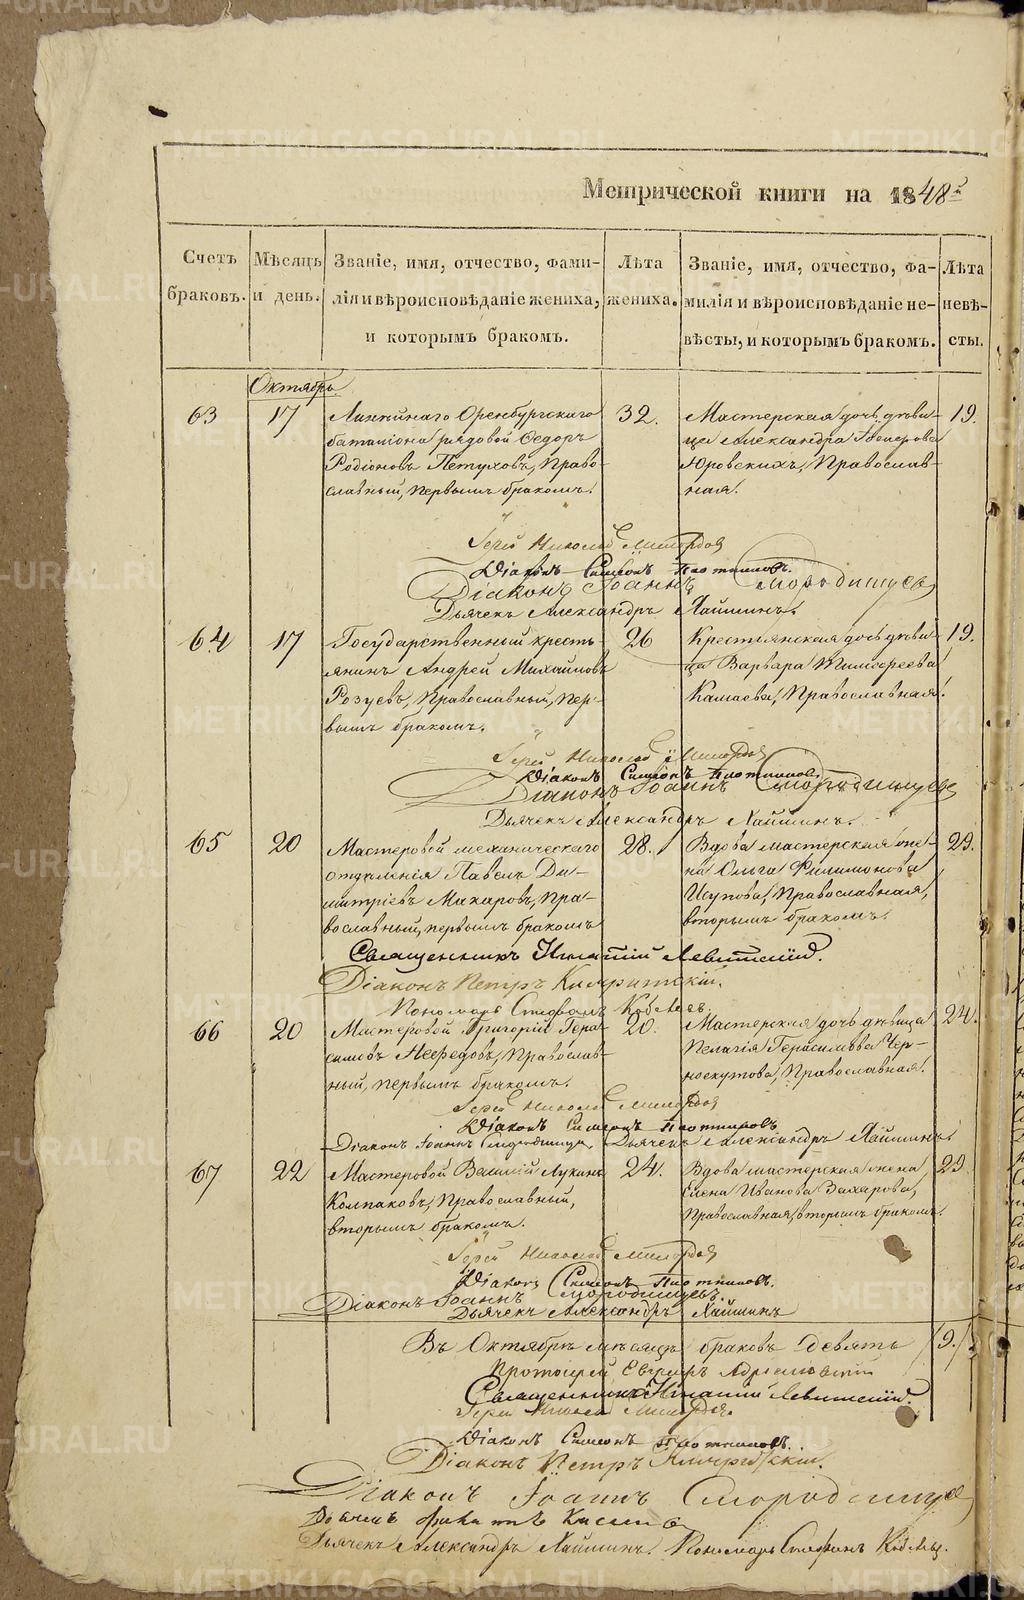 Метрической книги на 1848й
Счетъ браковъ.
Мѣсяцъ и день.
Званіе, имя, отчество, фами-
лія и вѣроисповѣданіе жениха,
и которымъ бракомъ.
Лѣта
жениха.
Званіе, имя, отчество, фа-
милія и вѣроисповѣданіе не-
вѣсты, и которымъ бракомъ.
Лѣта
невѣ-
сты.
Октябрь
63
17
Линѣйнаго Оренбургскаго
баталіона рядовой Ѳедоръ
Родіоновъ Пѣтуховъ, Право-
славный, первымъ бракомъ.
32.
Мастерская дочь дѣви-
ца Александра
Юровскихъ, Православ-
ная.
19.
Іерей Николай
Діаконъ Симеонъ Плотниковъ.
Діаконъ Іоаннъ Смородинцевъ
Дьячекъ Александръ
64
17
Государственный кресть-
янинъ Андрей Михайловъ
Розуевъ, Православный, пер-
вымъ бракомъ.
26
Крестьянская дочь дѣви-
ца Варвара Тимофеева
Камаева, Православная.
19.
Іерей Николай
Діаконъ Симеонъ Плотниковъ.
Діаконъ Іоаннъ Смородинцевъ
Дьячекъ Александръ
65
20
Мастеровой механическаго
отдѣленія Павелъ Ди-
митріевъ Макаровъ, Пра-
вославный, первымъ бракомъ
28.
Вдова мастерская же-
на Ольга Филимонова
Исупова, Православная,
вторымъ бракомъ.
29.
Священникъ Игнатій Левитскій.
Діаконъ Петръ
Пономарь Стефанъ
66
20
Мастеровой Григорій Гера-
симовъ Нефедовъ, Православ-
ный, первымъ бракомъ.
20.
Мастерская дочь дѣвица
Пелагія Герасимова Чер-
носкутова, Православная.
24.
Іерей Николай
Діаконъ Симеонъ Плотниковъ
Діаконъ Іоаннъ Смородинцевъ, Дьячекъ Александръ
67
22
Мастеровой Василій Лукинъ
Колпаковъ, Православный,
вторымъ бракомъ.
24.
Вдова мастерская жена
Елена Иванова Захарова,
Православная, вторымъ бракомъ.
29.
Іерей Николай
Діаконъ Симеонъ Плотниковъ.
Діаконъ Іоаннъ Смородинцевъ.
Дьячекъ Александръ
Въ Октябрѣ мѣсяцѣ браковъ девять /9./
Протоіерей
Священникъ Игнатій Левитскій.
Іерей Николай
Діаконъ Симеонъ Плотниковъ.
Діаконъ Петръ
Діаконъ Іоаннъ Смородинцевъ
Дьячекъ
Дьячекъ Александръ Пономарь Стефанъ
METRIKI.GASO-URAL.RU